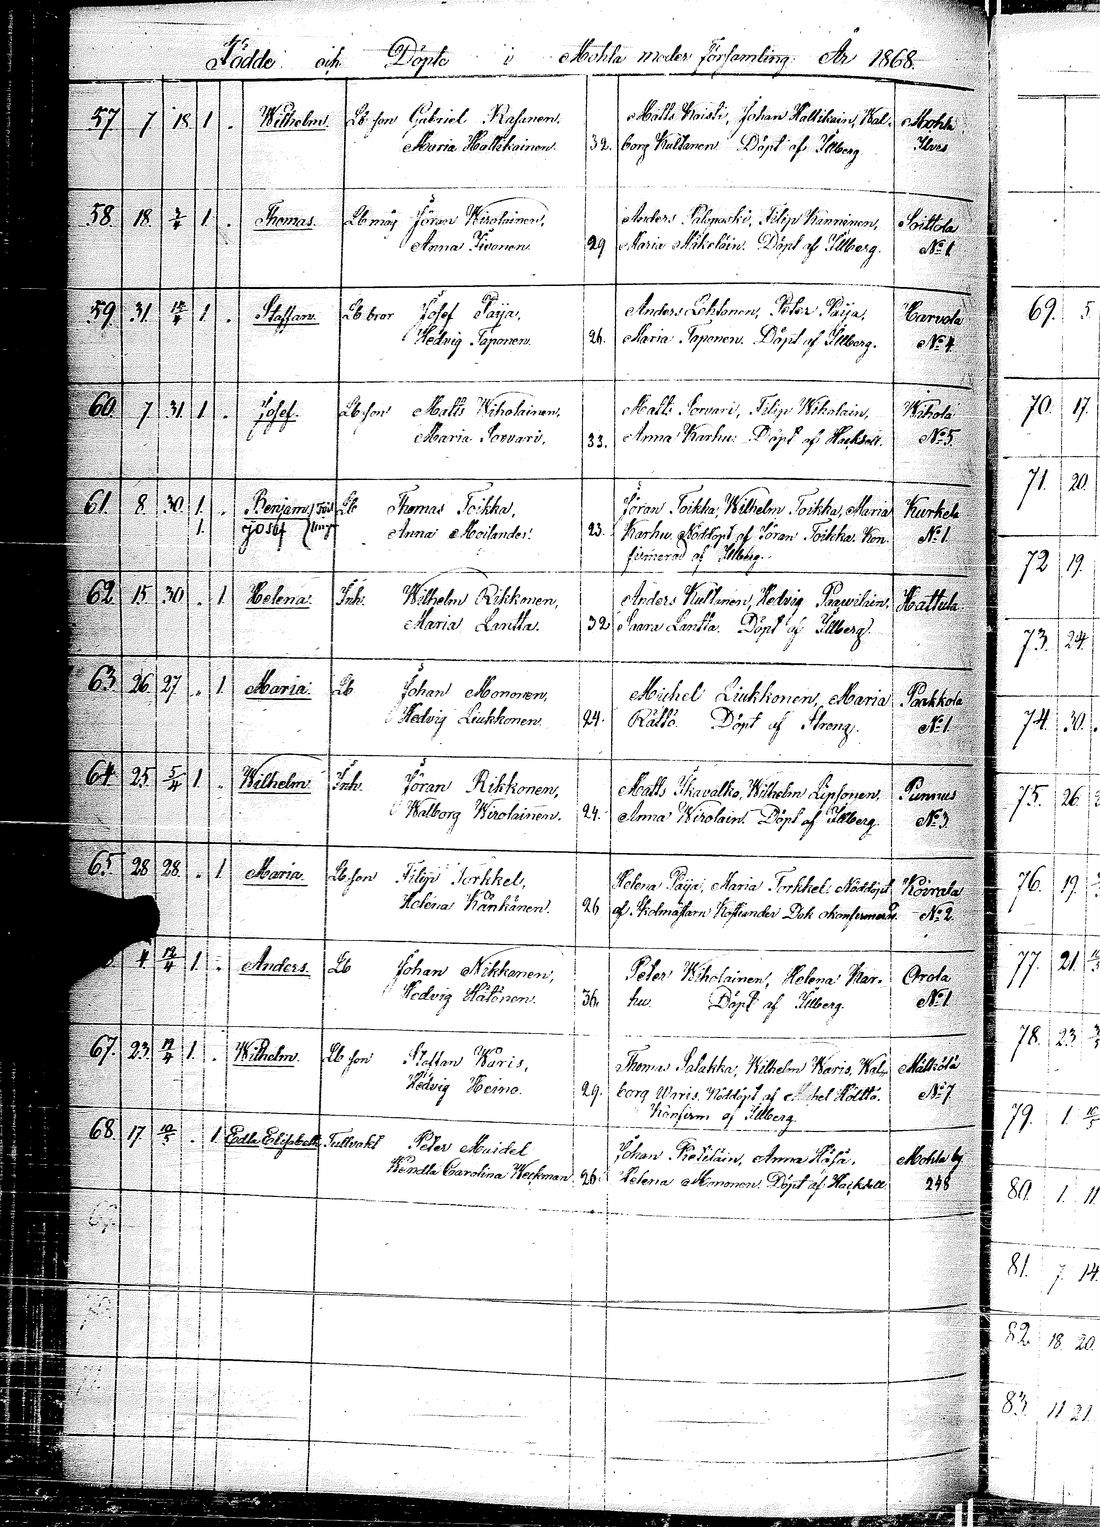 Födde och Döpte i Mohla moder församling. År 1868.
57 7 18 1 . Wilhelm. Lb son Gabriel Kasanen. Matts Kaisti, Johan Hallikain, Wal-
Maria Hallikainen 32. borg Kultanen Döpt af Illberg
Mohla
Ilves
58. 18. 1 . Thomas. Lb måg Jöran Wirolainen, Anders Filip Kinnonen,
Anna 29 Maria Mikolain. Döpt af Illberg.
Soittola
No 1
59. 31. 12/4 1 . Staffan. Lb bror Josef Paija, Anders Lohtonen, Peter Paija,
Hedvig Taponen. 26. Maria Taponen. Döpt af Illberg.
Karvola
No 4
60. 7 31 1 . Josef. Lb son Matts Wikolainen, Matts Sorvari, Filip Wikolain,
Maria Sorvari, 33. Anna Karhu. Döpt af Hacksell.
Wihola
No 5.
61. 8. 30. 1. Benjam. Lb Thomas Toikka, Jöran Toikka, Wilhelm Toikka, Maria
1. Josef Anna Moilander. 23. Karhu Nöddöpt af Jöran Toikka Kon
firmerad af Illberg.
Kurkela
No 1.
62. 15. 30 . 1. Helena. Inh. Wilhelm Rikkonen, Anders Kultanen, Hedvig Paavilain,
Maria Lantta. 32 Saara Lantta. Döpt af Illberg.
Kattula
63 26. 27 . 1. Maria. Lb Johan Mononen, Michel Liukkonen, Maria
Hedvig Liukkonen 24. Rättö. Döpt af Streng.
Paakkola
No 1
64. 25 5/4 1. . Wilhelm Inh. Jöran Rikkonen, Matts Skavalko, Wilhelm Lipsonen,
Walborg Wirolainen. 24. Anna Wirolain. Döpt af Illberg.
Punnus
No 3.
65. 28 28. . 1 Maria. Lb son Filip Torkkel, Helena Paija, Maria Torkkel. Nöddöpt
Helena 26 af Skolmästarn Dok okonfirmerad.
Koirala
No 2.
4. 12/4 1. . Anders. Lb Johan Nikkanen, Peter Wikolainen, Helena Kar-
Hedvig Hätönen. 36. hu. Döpt af Illberg.
Orola
No 1
67. 23. 12/4 1. . Wilhelm. Lb son Staffan Waris, Thomas Salakka, Wilhelm Waris, Wal-
Hedvig Heimo. 29. borg Waris. Nöddöpt af Michel Hölttö.
Konfirm af Illberg.
Mälkölä
No 7
68. 17. 10/5 . 1. Edla Elisabeth Tullvakt Peter Muidel Johan Pietiläin, Anna
Wendla Carolina Weckman 26. Helena Mononen. Döpt af Hacksell
Mohla by
248
69. 5.
70. 17.
71. 20.
72 19.
73. 24.
74. 30.
75. 26.
76. 19.
77. 21.
78. 23.
79. 1. 10/5
80. 1. 11
81. 7 14.
82. 18. 20.
83. 11 21.